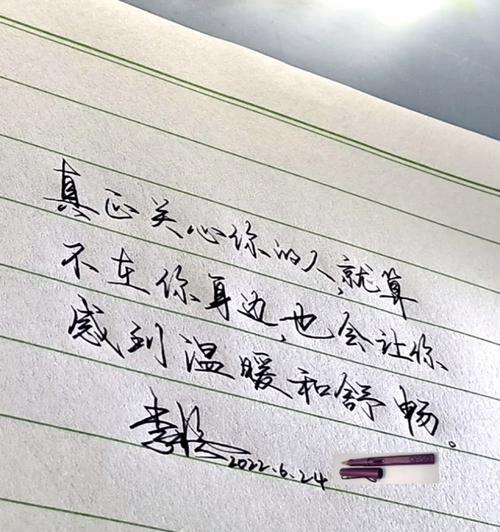 真正关心你的人,就算
不在你身边,也会让你
感到温暖和舒畅。
2022.6.24